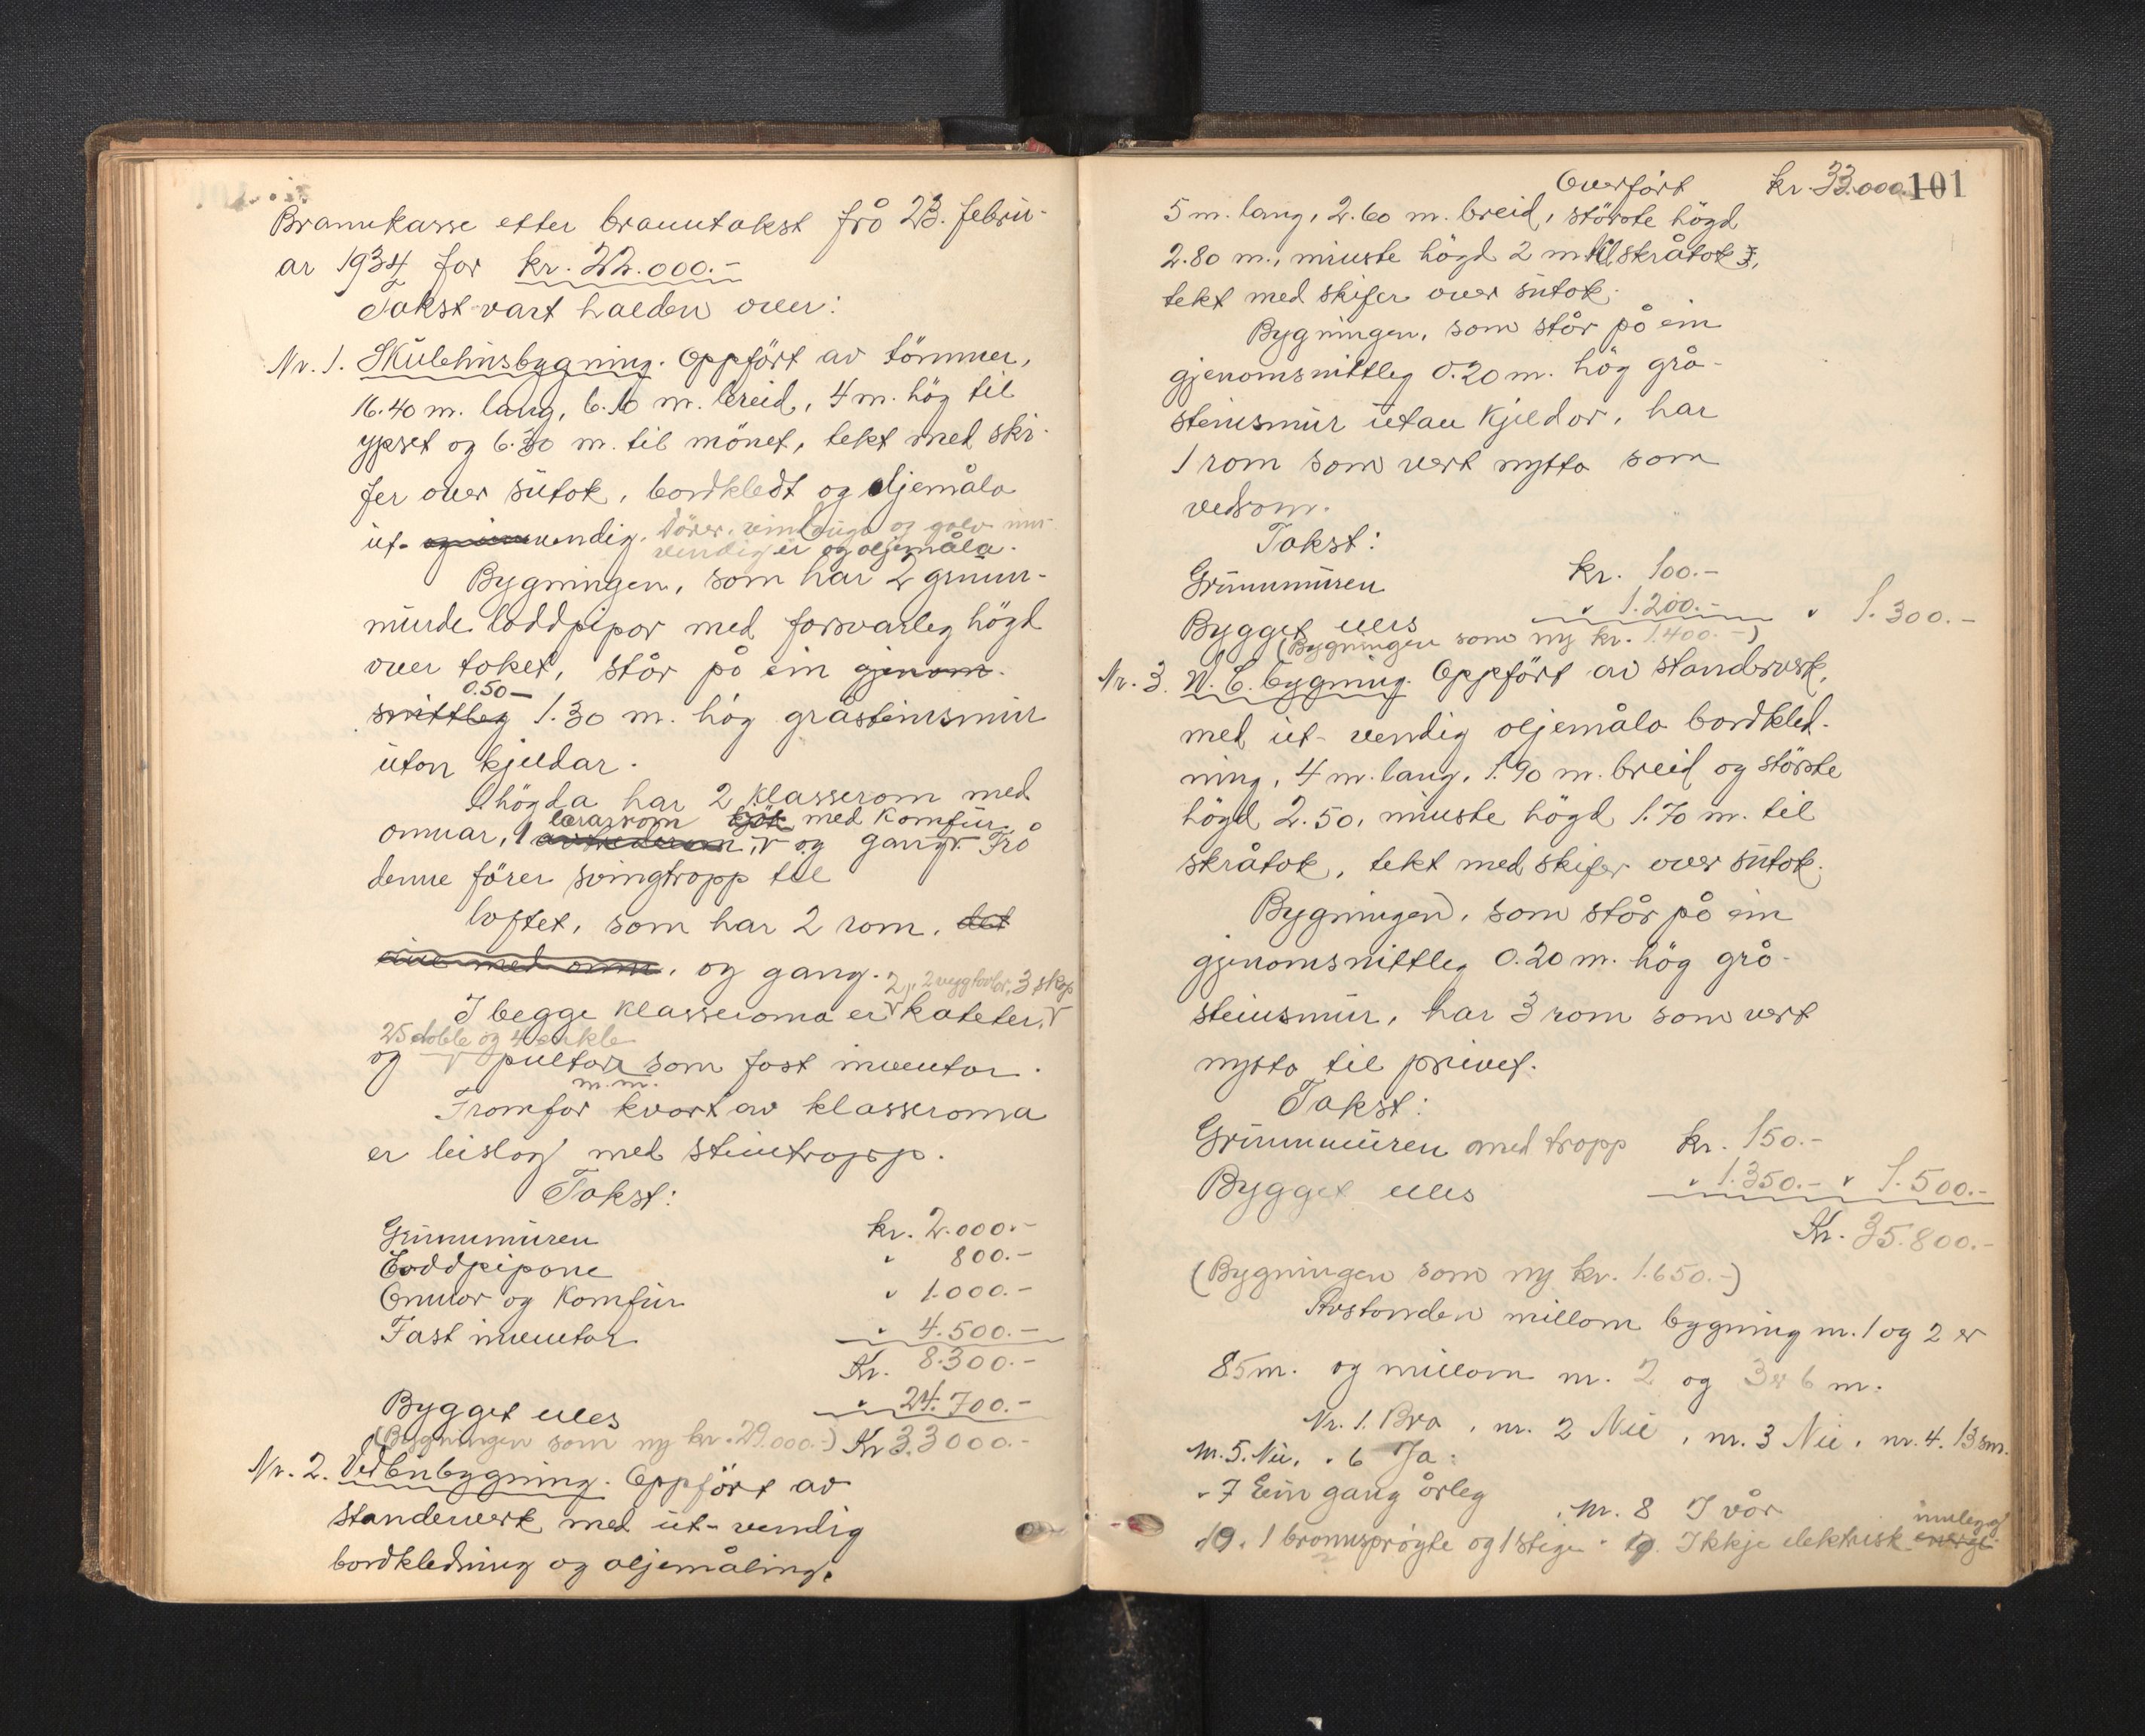 Brannkasse etter branntakst frå 23. febru-
ar 1934 for kr. 22.000.-
Takst vart halden over:
Nr. 1. Skulehusbygning. Oppført av tömmer,
16.40 m. lang, 6.10 m. breid, 4 m. hög til
ypset og 6.30 m. til mönet, tekt med ski-
fer over sutak, bordkledt og oljemåla
ut- og innvendig. Dörer, vindauga og golv inn-
vendig er og oljemåla.
Bygningen, som har 2 grunn-
murde loddpipor med forsvarleg högd
over taket, står på ein gjenom-
0.50 —
snittleg 1.30 m. hög gråsteinsmur
utan kjeldar.
1 högda har 2 klasserom med
lærarrom kjök med komfur
omnar, 1 og gang. Frå
denne förer svingtropp til
loftet, som har 2 rom, det
eine med omn, og gang. 2, 2 veggtavlor, 3 skap
I begge klasseroma er kateter,
25 doble og 4 enkle
og pultar som fast inventar.
m.m.
Framfor kvart av klasseroma
er leislag med steintropp.
Takst:
Grunnmuren kr. 2.000.-
Loddpipone " 800.-
Omnar og komfur " 1.000.-
Fast inventar " 4.500.-
Kr. 8.300.-
Bygget elles " 24.700.-
(Bygningen som ny kr. 29.000.-) Kr 33000.-
Nr. 2. Vedbubygning. Oppført av
standerverk med ut- vendig
bordkledning og oljemåling,
Overført kr. 33.000.- 101
5 m. lang, 2.60 m. breid, störste högd
2.80 m., minste högd 2 m. til skråtak,
tekt med skifer over sutak.
Bygningen, som står på ein
gjenomsnittleg 0.20 m. hög grå-
steinsmur utan kjeldar, har
1 rom som vert nytta som
vedrom.
Takst:
Grunnmuren kr. 100.-
Bygget elles " 1.200.- " 1.300.-
(Bygningen som ny kr. 1.400.-)
Nr. 3. W.C. bygning. Oppført av standerverk,
med ut- vendig oljemåla bordkled-
ning, 4 m. lang, 1.90 m. breid og störste
högd 2.50, minste högd 1.70 m. til
skråtak, tekt med skifer over sutak.
Bygningen, som står på ein
gjenomsnittleg 0.20 m. hög grå-
steinsmur, har 3 rom som vert
nytta til privet.
Takst:
Grunnmuren med tropp kr. 150.-
Bygget elles " 1.350.- " 1.500.-
Kr. 35.800.-
(Bygningen som ny kr. 1.650.-)
Avstanden millom bygning nr. 1 og 2 er
85 m. og millom nr. 2 og 3 er 6 m.
Nr. 1. Bra, nr. 2 Nei, nr. 3 Nei, nr. 4. 13 sm.
nr. 5. Nei, " 6 Ja.
" 7 Ein gang årleg, nr. 8 I vår
innlegg
10. 1 brannspröyte og 1 stige. 9. Ikkje elektrisk energi